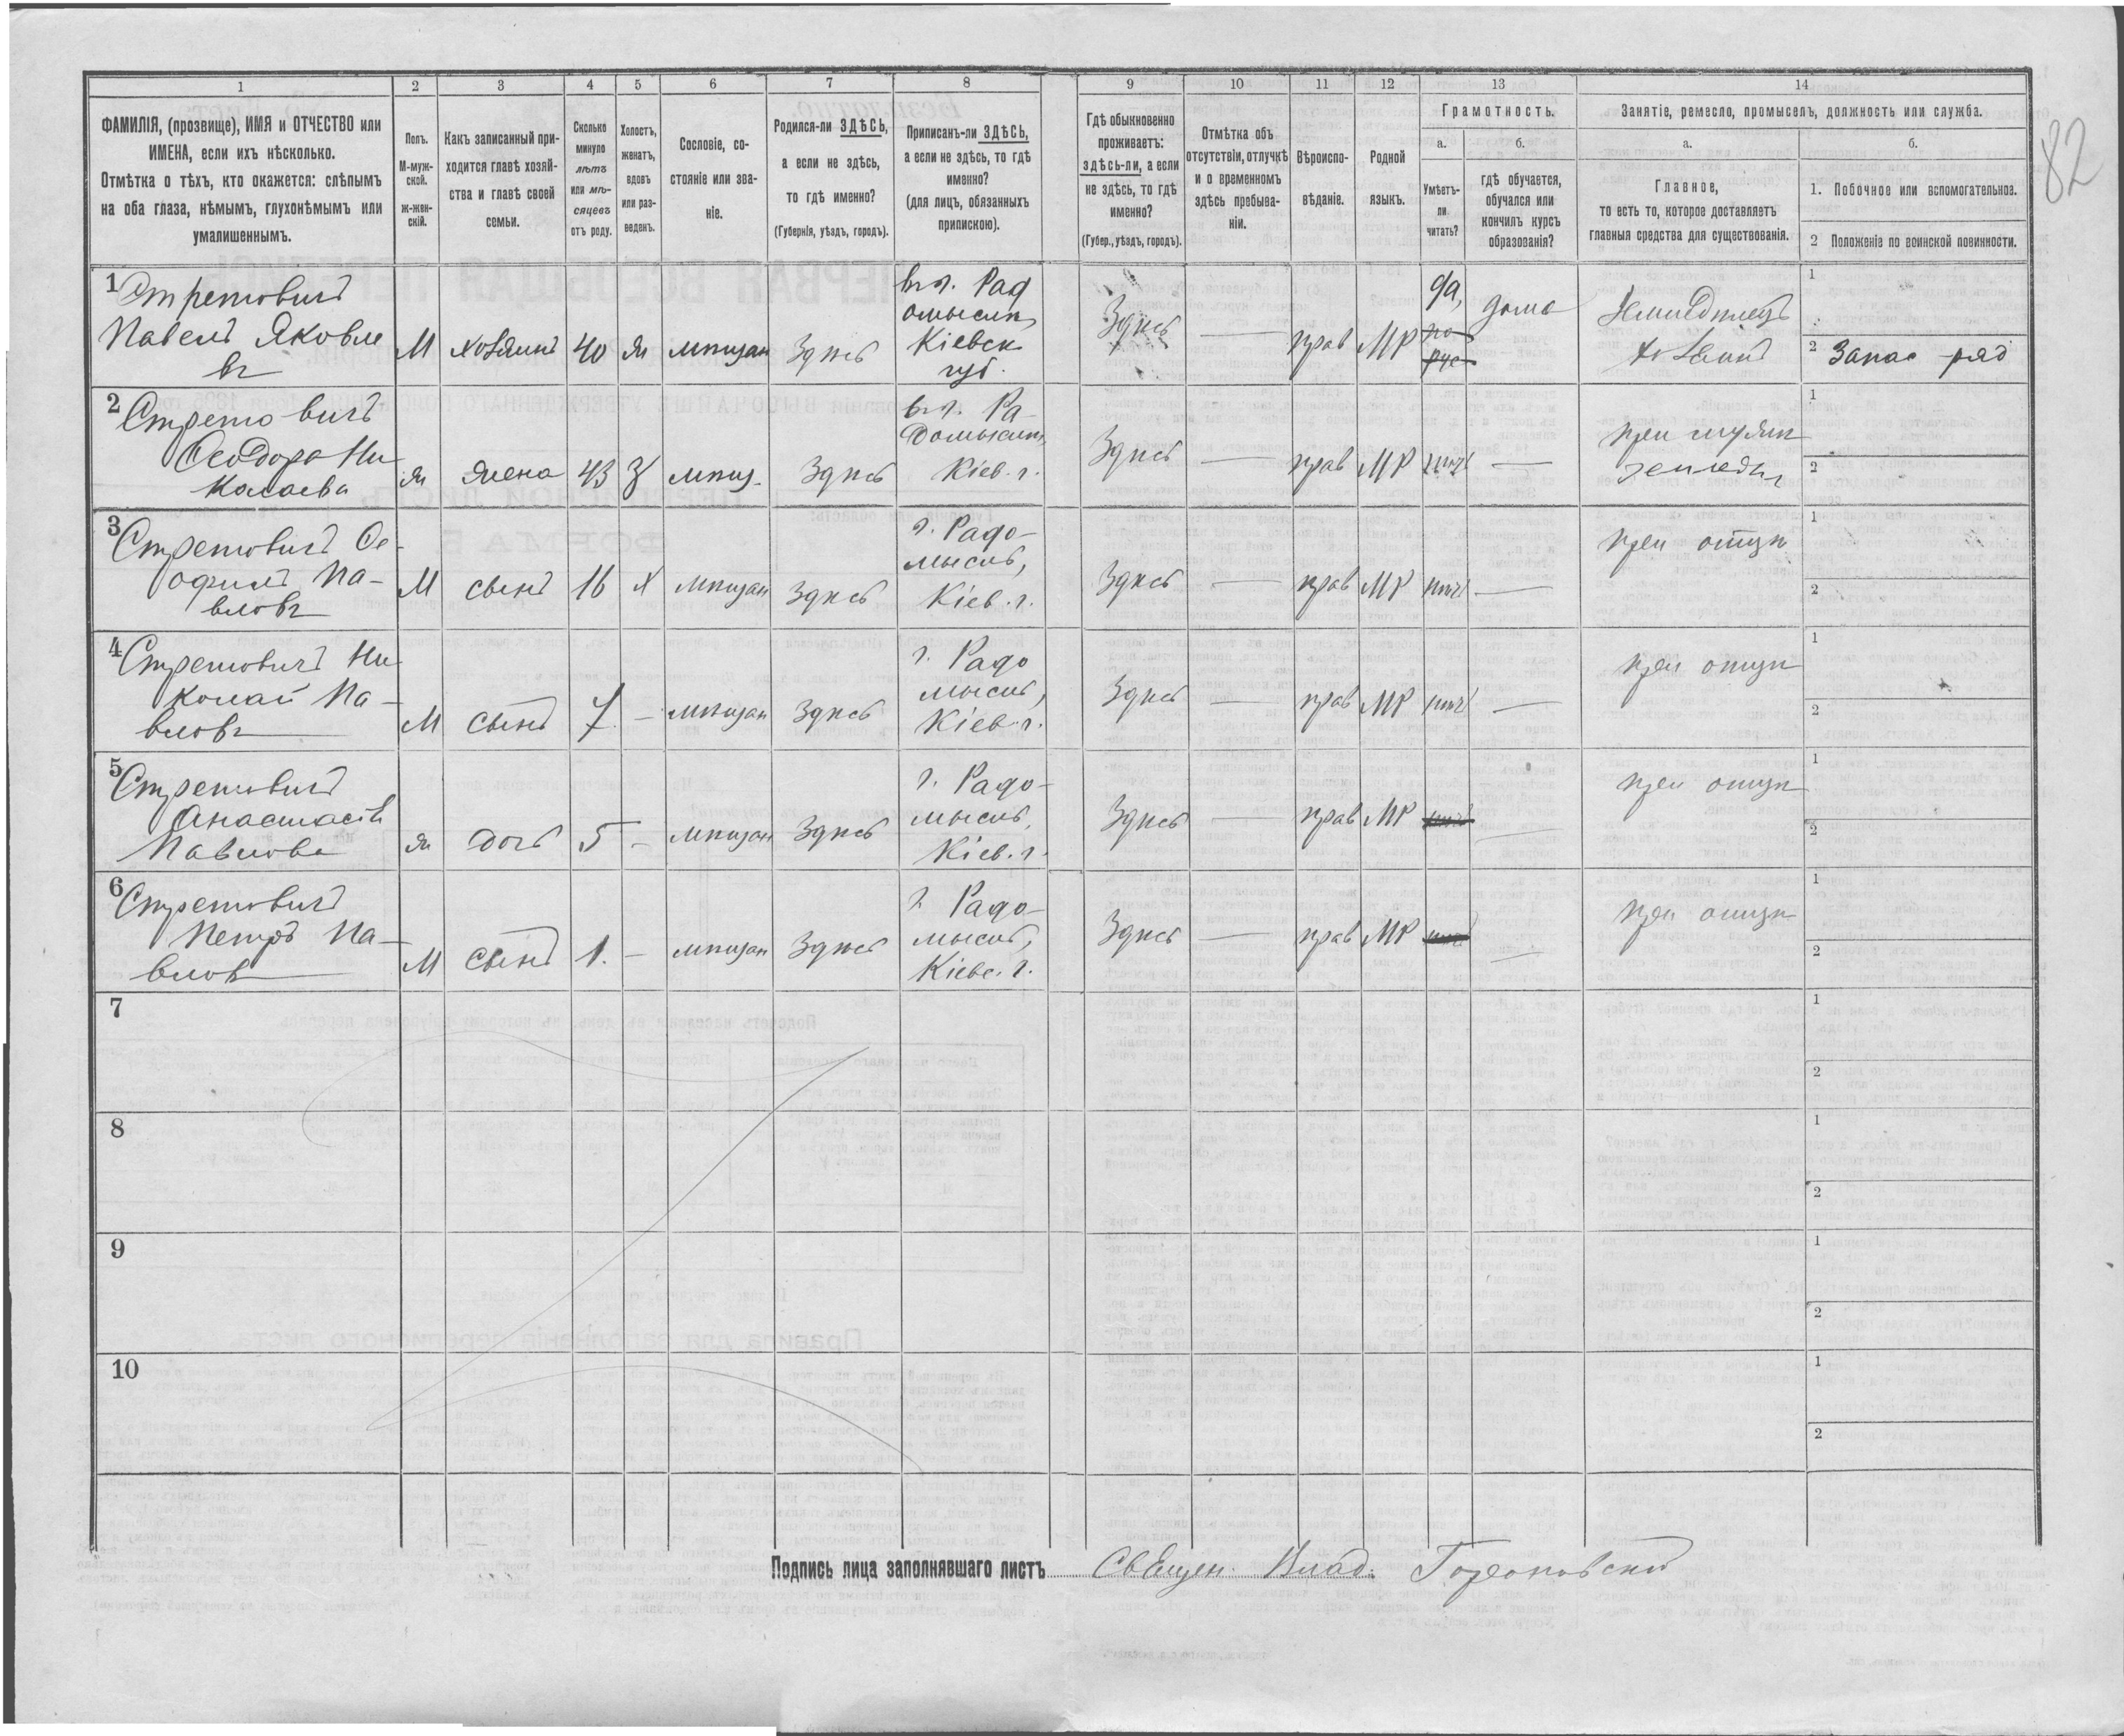 82
1 2 3 4 5 6 7 8 9 10 11 12 13 14
ФАМИЛІЯ, (прозвище), ИМЯ и ОТЧЕСТВО или
ИМЕНА, если ихъ нѣсколько.
Отмѣтка о тѣхъ, кто окажется: слѣпымъ
на оба глаза, нѣмымъ, глухонѣмымъ или
умалишеннымъ.
Полъ.
М-муж-
ской.
ж-жен-
скій.
Какъ записанный при-
ходится главѣ хозяй-
ства и главѣ своей
семьи.
Сколько
минуло
лѣтъ
или мѣ-
сяцевъ
отъ роду.
Холостъ,
женатъ,
вдовъ
или раз-
веденъ.
Сословіе, со-
стояніе или зва-
ніе.
Родился-ли ЗДѢСЬ,
а если не здѣсь,
то гдѣ именно?
(Губернія, уѣздъ, городъ).
Приписанъ-ли ЗДѢСЬ,
а если не здѣсь, то гдѣ
именно?
(для лицъ, обязанныхъ
припискою).
Гдѣ обыкновенно
проживаетъ:
здѣсь-ли, а если
не здѣсь, то гдѣ
именно?
(Губер., уѣздъ, городъ).
Отмѣтка объ
отсутствіи, отлучкѣ
и о временномъ
здѣсь пребыва-
ніи.
Вѣроиспо-
вѣданіе.
Родной
языкъ.
Грамотность.
а.
Умѣетъ-
ли
читать?
б.
гдѣ обучается,
обучался или
кончилъ курсъ
образованія?
Занятіе, ремесло, промыселъ, должность или служба.
а.
Главное,
то есть то, которое доставляетъ
главныя средства для существованія.
б.
1. Побочное или вспомогательное.
2 Положеніе по воинской повинности.
1
Стретовичъ
Павелъ Яковле
въ
М хозяинъ 40 ж мѣщан Здѣсь
въ г. Рад
омыслѣ,
Кіевск
губ.
Здѣсь — прав МР
да,
по
рус
дома
Земледѣлецъ
хозяинъ
1
2 Запас ряд
2
Стретовичъ
Ѳеодора Ни
колаева
ж жена 43 З мѣщ. Здѣсь
въ г. Ра-
домыслѣ,
Кіев. г.
Здѣсь — прав МР нѣтъ —
при мужѣ
земледѣл
1
2
3
Стретовичъ Ѳе-
офилъ Па-
вловъ
М сынъ 16 Х мѣщан Здѣсь
г. Радо-
мысль,
Кіев. г.
Здѣсь — прав МР нѣтъ —
при отцѣ
1
2
4
Стретовичъ Ни
колай Па-
вловъ
М сынъ 7 — мѣщан Здѣсь
г. Радо
мысль,
Кіев. г.
Здѣсь — прав МР нѣтъ —
при отцѣ
1
2
5
Стретовичъ
Анастасія
Павлова
ж дочь 5 — мѣщан Здѣсь
г. Радо-
мысль,
Кіев. г.
Здѣсь — прав МР нѣтъ —
при отцѣ
1
2
6
Стретовичъ
Петръ Па-
влов
М сынъ 1. — мѣщан Здѣсь
г. Радо-
мысль,
Кіевс. г.
Здѣсь — прав МР нѣтъ —
при отцѣ
1
2
7
1
2
8
1
2
9
1
2
10
1
2
Подпись лица заполнявшаго листъ Священ. Влад.